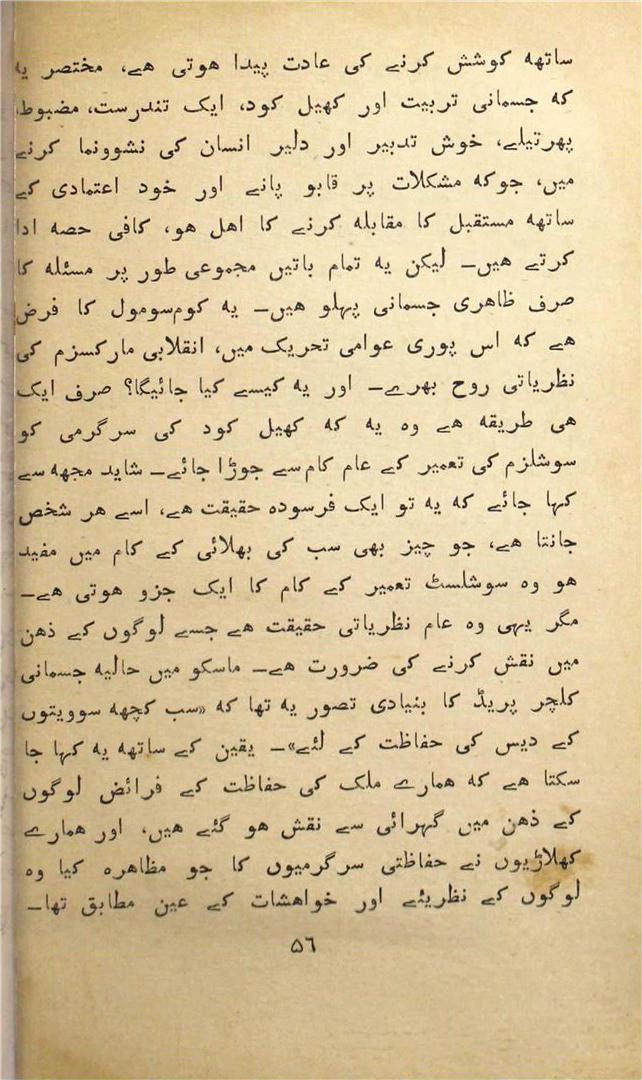 ساتھه کوشش کرنے کی عادت پیدا هوتی هے، مختصر یه
که جسمانی تربیت اور کھیل کود، ایک تندرست، مضبوط،
پھرتیلے، خوش تدبیر اور دلیر انسان کی نشوونما کرنے
میں، جوکه مشکلات پر قابو پانے اور خود اعتمادی کے
ساتھه مستقبل کا مقابله کرنے کا اهل هو، کافی حصه ادا
کرتے هیں۔ لیکن یه تمام باتیں مجموعی طور پر مسئله کا
صرف ظاهری جسمانی پہلو هیں۔ یه کوم‌سومول کا فرض
هے که اس پوری عوامی تحریک میں، انقلابی مارکسزم کی
نظریاتی روح بھرے۔ اور یه کیسے کیا جائیگا؟ صرف ایک
هی طریقه هے وه یه که کھیل کود کی سرگرمی کو
سوشلزم کی تعمیر کے عام کام سے جوڑا جائے۔ شاید مجھه سے
کہا جائے که یه تو ایک فرسوده حقیقت هے، اسے هر شخص
جانتا هے، جو چیز بھی سب کی بھلائی کے کام میں مفید
هو وه سوشلسٹ تعمیر کے کام کا ایک جزو هوتی هے۔
مگر یہی وه عام نظریاتی حقیقت هے جسے لوگوں کے ذهن
میں نقش کرنے کی ضرورت هے۔ ماسکو میں حالیه جسمانی
کلچر پریڈ کا بنیادی تصور یه تھا که «سب کچھه سوویتوں
کے دیس کی حفاظت کے لئے»۔ یقین کے ساتھه یه کہا جا
سکتا هے که همارے ملک کی حفاظت کے فرائض لوگوں
کے ذهن میں گہرائی سے نقش هو گئے هیں، اور همارے
کھلاڑیوں نے حفاظتی سرگرمیوں کا جو مظاهره کیا وه
لوگوں کے نظریئے اور خواهشات کے عین مطابق تھا۔
۵۶